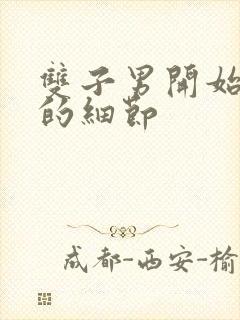 雙子男開始
的細節
成都-西安-榆